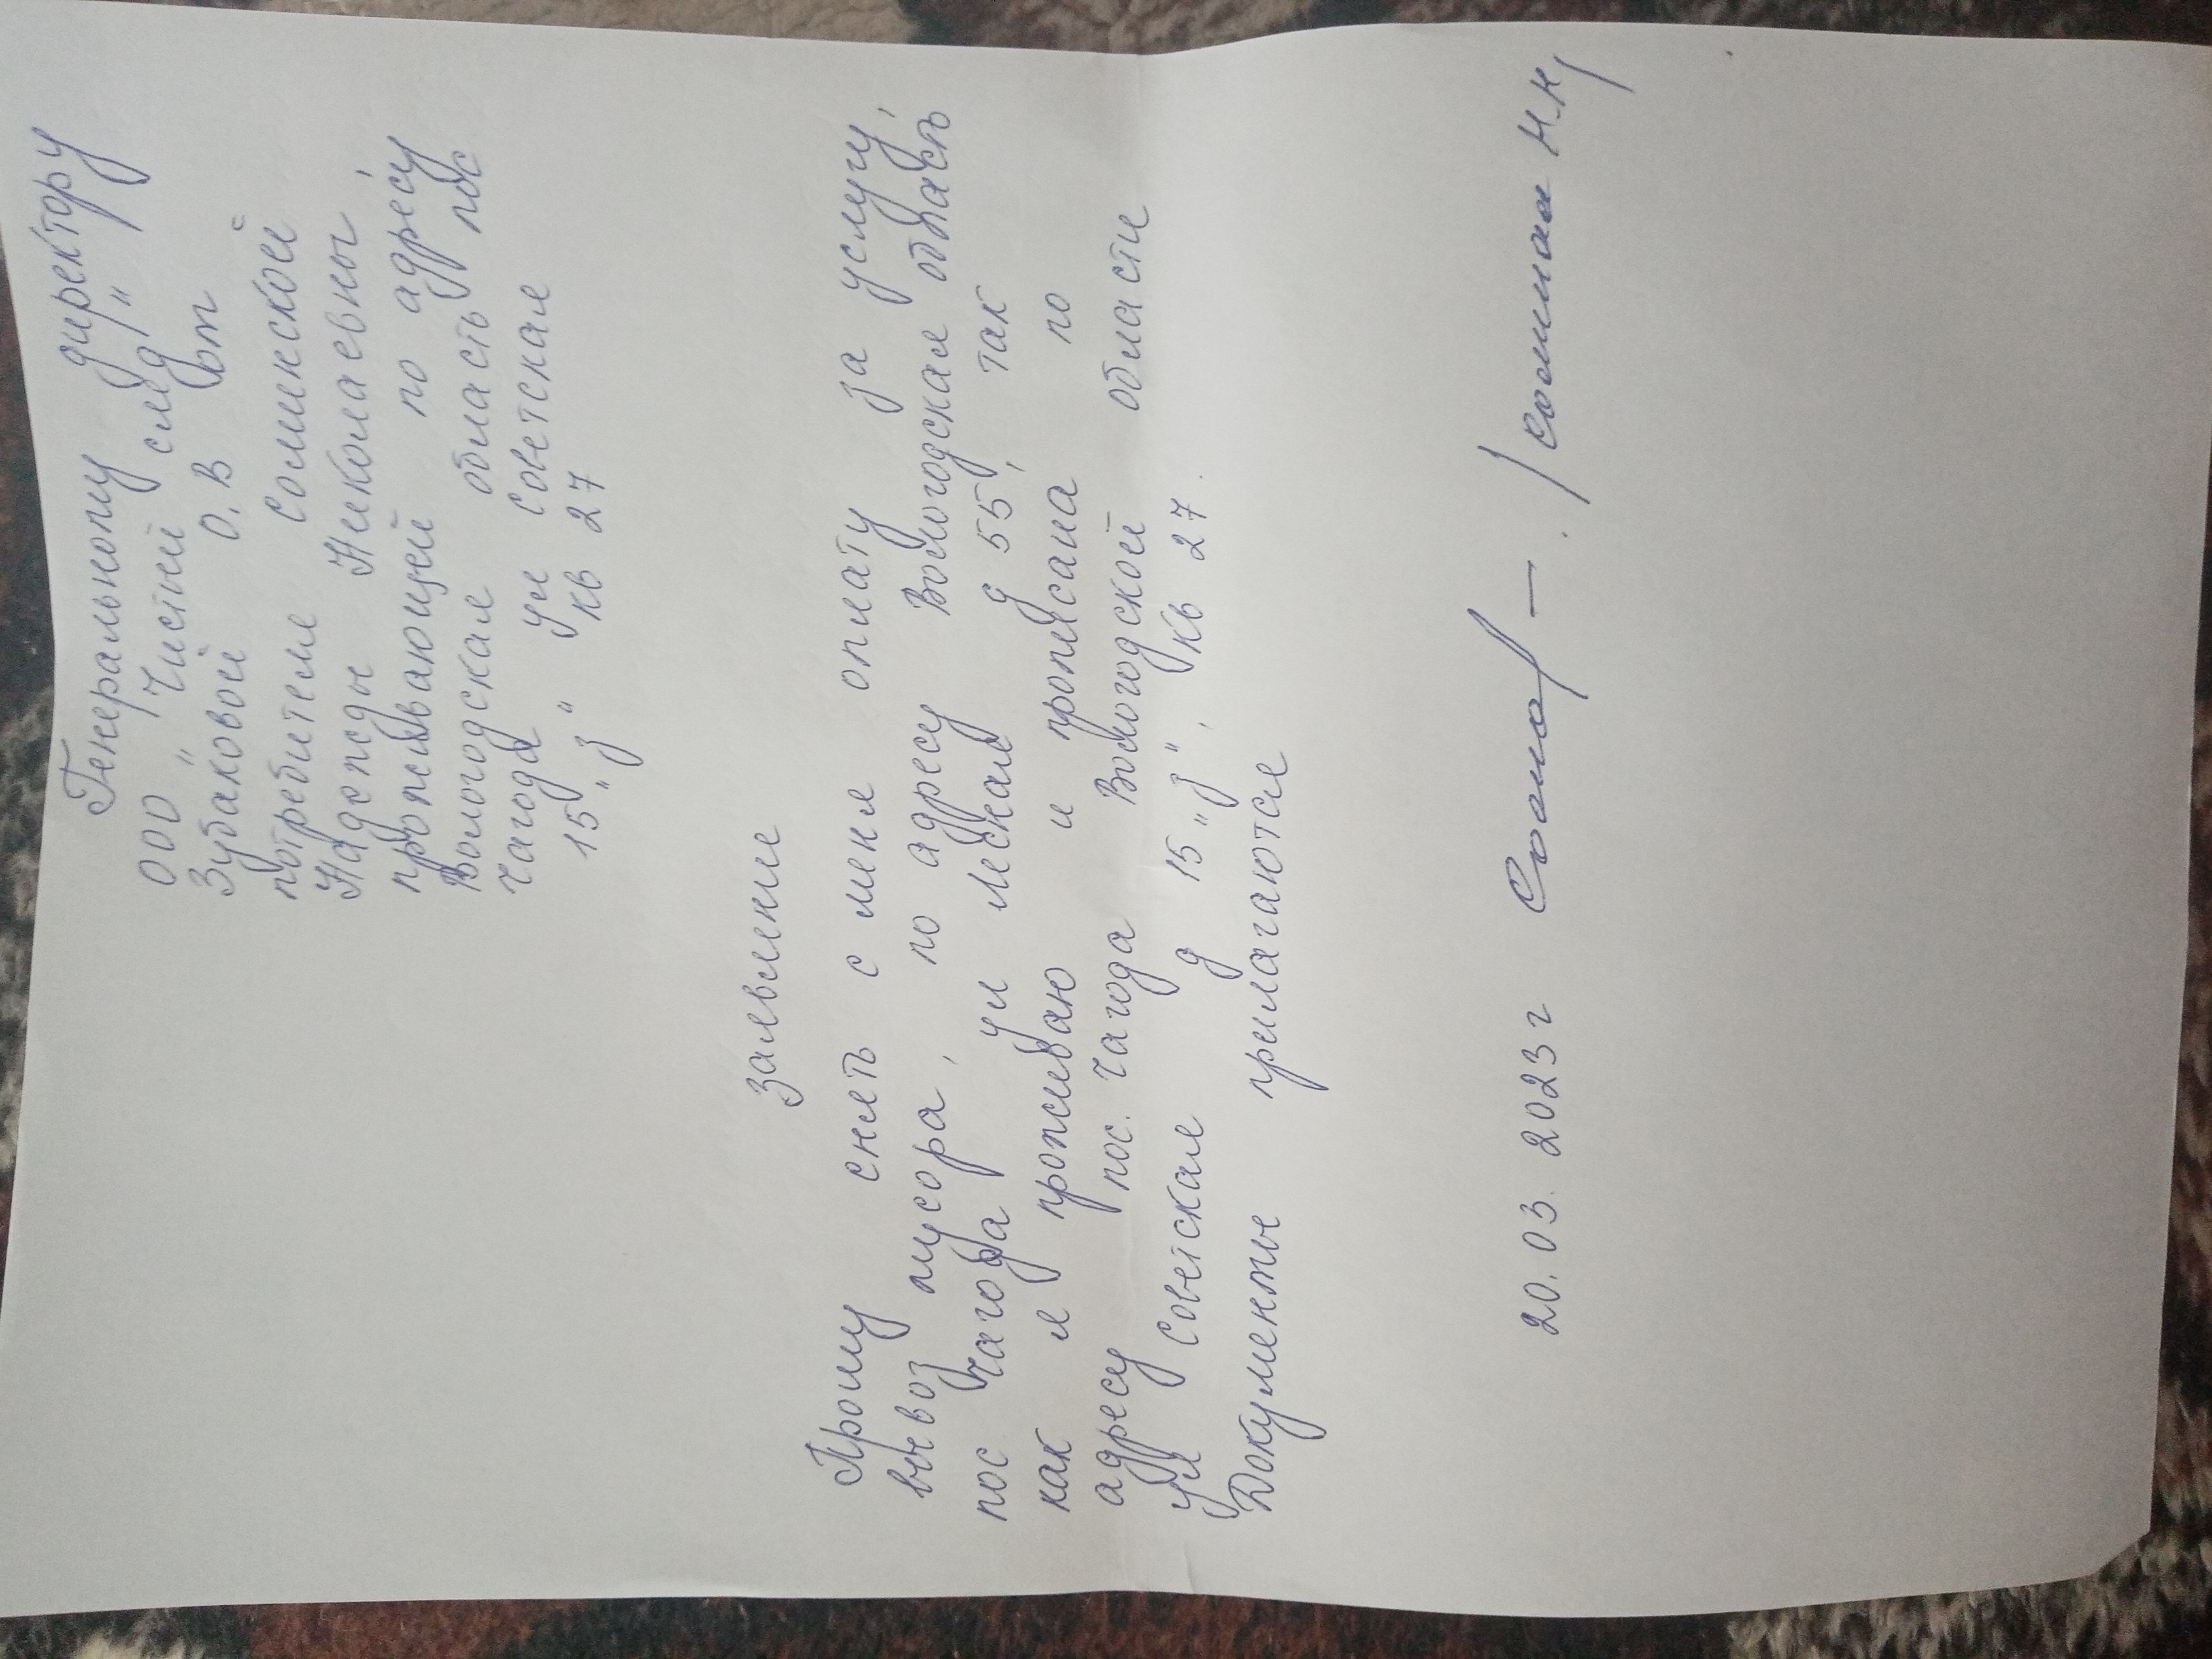 Генеральному директору
ООО "Чистый след"
Зубаковой О.В от
потребителя Соминской
Надежды Николаевны,
проживающей по адресу
Вологодская область пос
Чагода ул Советская
15 "з" кв 27
заявление
Прошу снять с меня оплату за услугу,
вывоз мусора, по адресу Вологодская область
пос Чагода ул Лесная д 55, так
как я проживаю и прописана по
адресу пос. Чагода Вологодской области
ул Советская д 15 "з", кв 27.
Документы прилагаются
20.03.2023 г